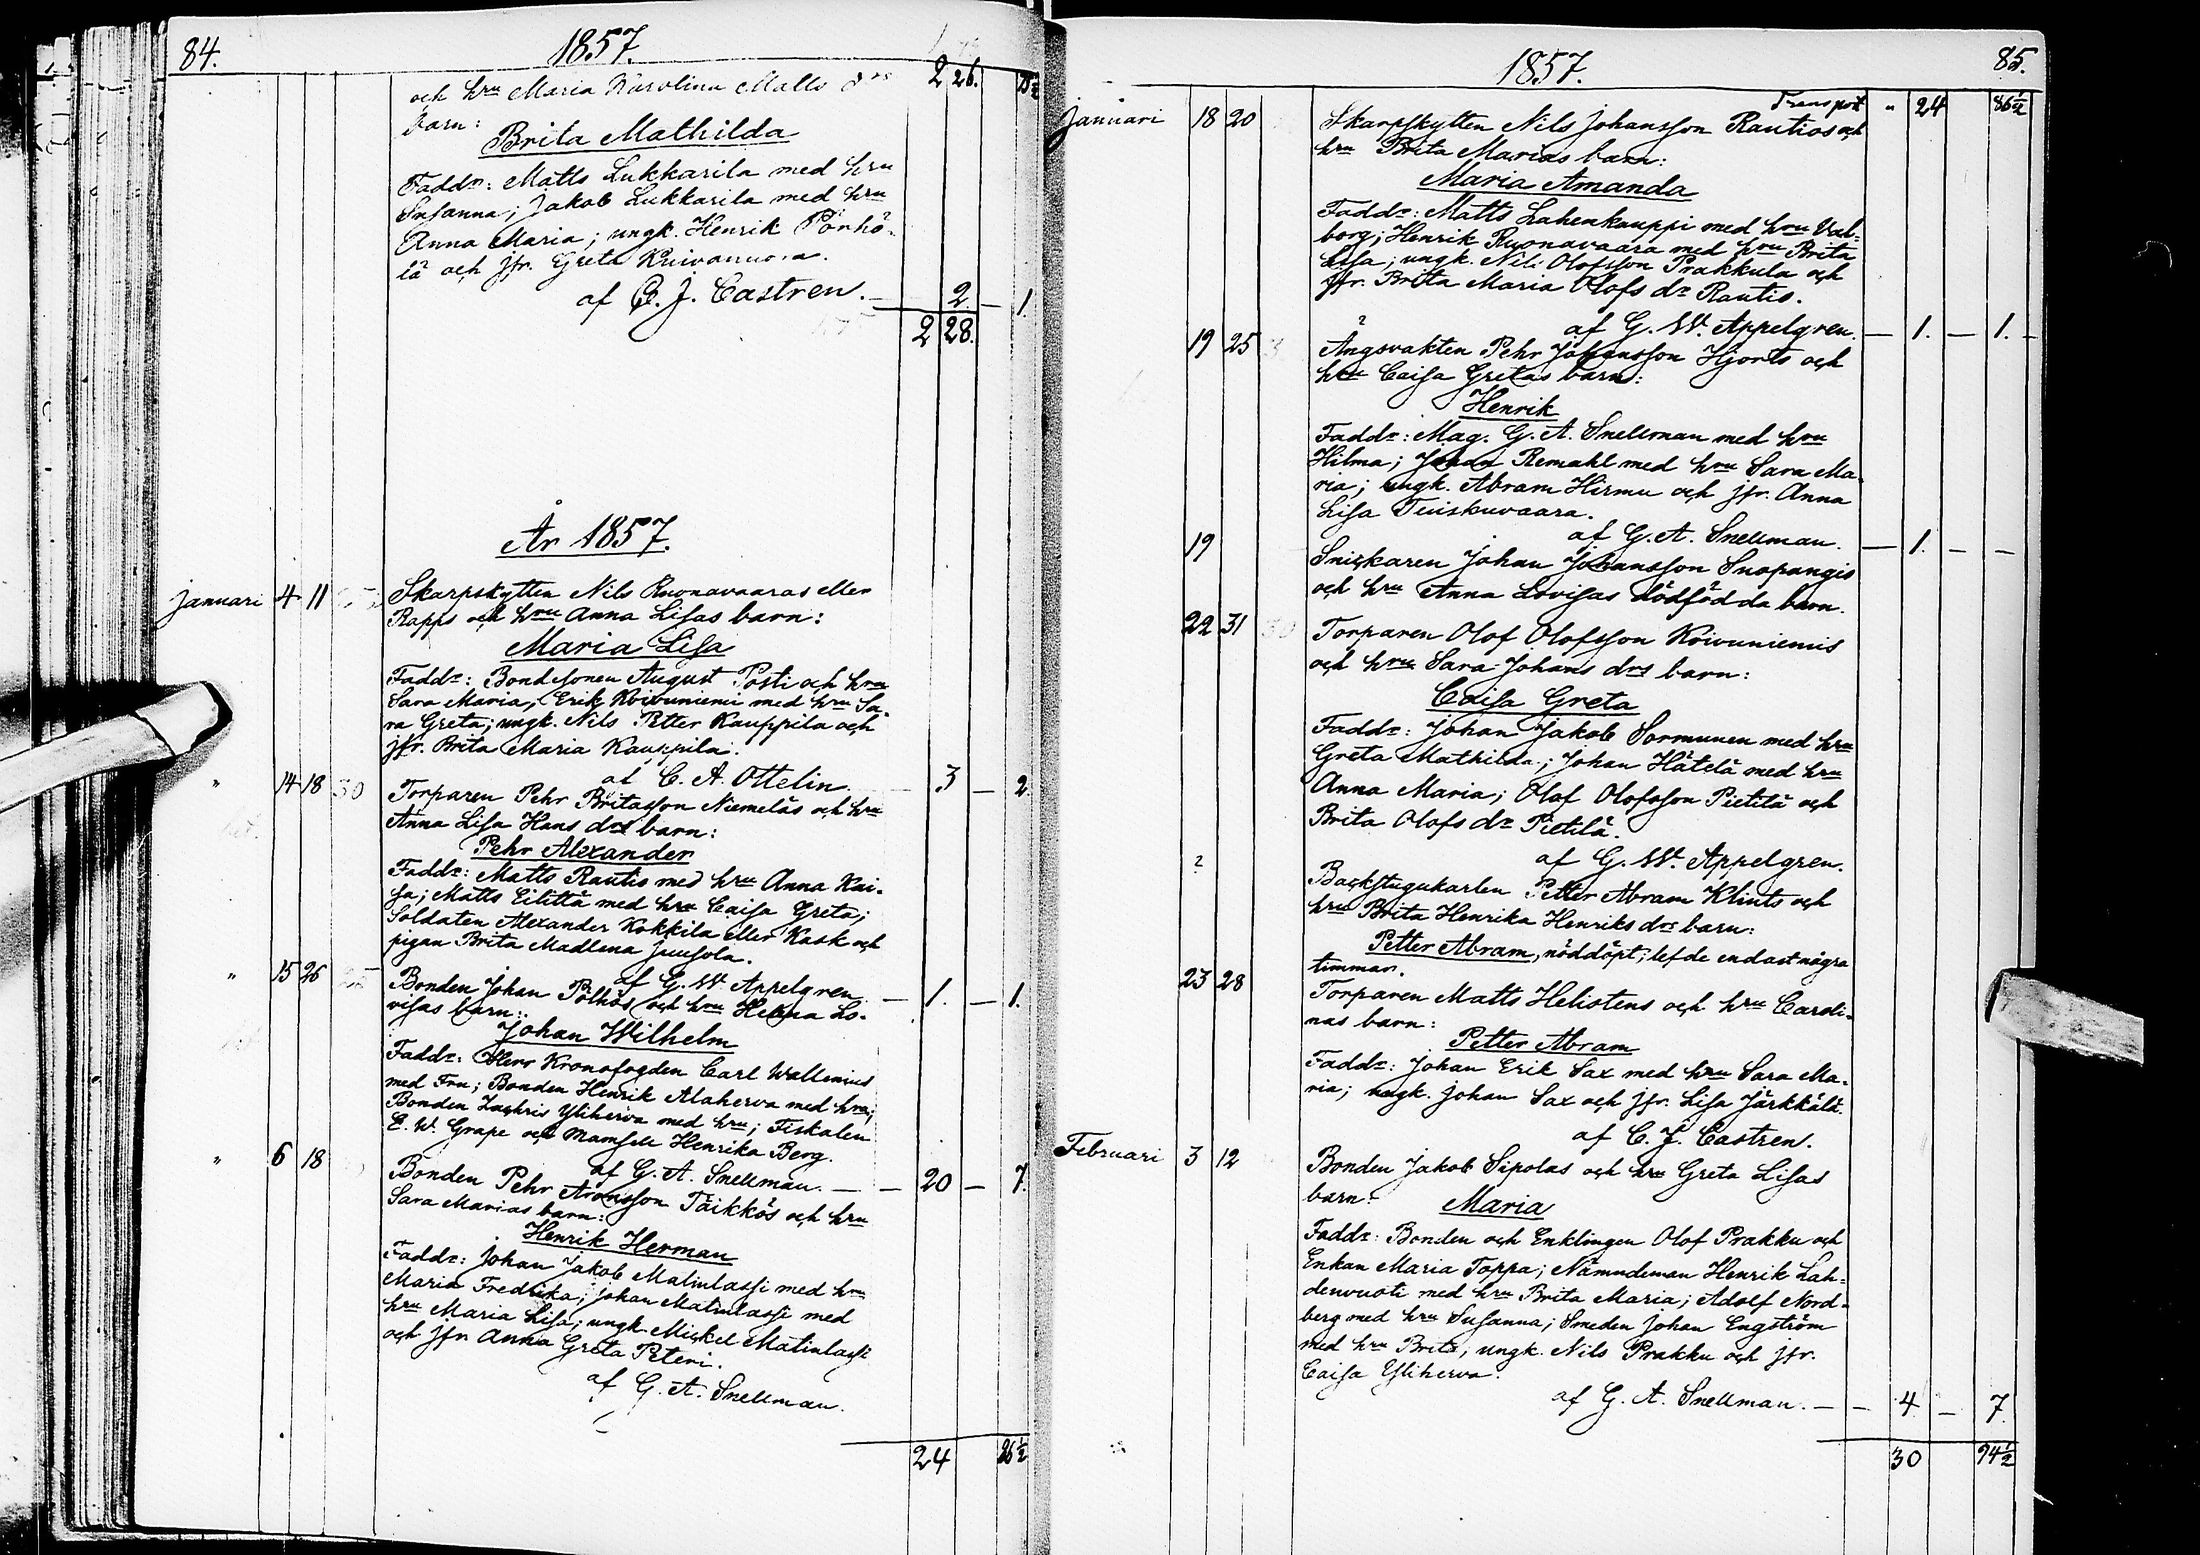 84.
1857.
och hru Maria Karolina Matts drs
2 26.
barn:
Brita Mathilda
Faddr: Matts Lukkarila med hru
Susanna; Jakob Lukkarila med hru
Anna Maria; ungk. Henrik Pörhö-
lä och jfr. Greta
af C. J. Castren. — 2 — 1.
2 28.
År 1857.
Januari 4 11 Skarpskytten Nils Ruonavaaras eller
Rapps och hru Anna Lisas barn:
Maria Lisa
Faddr: Bondesonen August Posti och hru
Sara Maria; Erik Koivuniemi med hru Sa-
ra Greta; ungk. Nils Petter Kauppila och
jfr. Brita Maria Kauppila.
af C. A. Ottelin. 3 — 2
" 14 18 30 Torparen Pehr Britasson Niemeläs och hru
Anna Lisa Hans drs barn:
Pehr Alexander
Faddr: Matts Rautio med hru Anna Kai-
sa; Matts Eilittä med hru Caisa Greta;
Soldaten Alexander Kokkila eller Kask och
pigan Brita Madlena Juusola.
af G. W. Appelgren — 1. — 1.
" 15 26 Bonden Johan Pölhös och hru Helena Lo-
visas barn:
Johan Wilhelm
Faddr: Herr Kronofogden Carl Wallenius
med Fru; Bonden Henrik Alaherva med hru;
Bonden Zachris Yliherva med hru; Fiskalen
E. W. Grape och Mamsell Henrika Berg.
af G. A. Snellman. — — 20 — 7.
" 6 18 Bonden Pehr Aronsson Täikkös och hru
Sara Marias barn:
Henrik Herman
Faddr: Johan Jakob Matinlassi med hru
Maria Fredrika; Johan Matinlassi med
hru Maria Lisa; ungk. Mickel Matinlassi
och jfr. Anna Greta Peteri.
af G. A. Snellman.
24 86½
1857.
85.
Transport " 24 86½
Januari 18 20 Skarpskytten Nils Johansson Rautios och
hru Brita Marias barn:
Maria Amanda
Faddr: Matts Lahenkauppi med hru Val-
borg; Henrik Ruonavaara med hru Brita
Caisa; ungk. Nils Olofsson Prakkula och
jfr. Brita Maria Olofs dr Rautio.
af G. W. Appelgren. — 1. — 1. —
19 25 Ängsvakten Pehr Johansson Hjorts och
hru Caisa Gretas barn:
Henrik
Faddr: Mag. G. A. Snellman med hru
Hilma; Johan Remahl med hru Sara Ma-
ria; ungk. Abram Hirmu och jfr. Anna
Lisa Tuiskuvaara.
af G. A. Snellman. — 1. — —
19 Snickaren Johan Johansson Snopangis
och hru Anna Lovisas dödfödda barn.
22 31 30 Torparen Olof Olofsson Koivuniemis
och hru Sara Johans drs barn:
Caisa Greta
Faddr: Johan Jakob Sormunen med hru
Greta Mathilda; Johan Hätelä med hru
Anna Maria; Olof Olofsson Pietilä och
Brita Olofs dr Pietilä.
af G. W. Appelgren.
? Backstugukarlen Petter Abram Klints och
hru Brita Henrika Henriks drs barn:
Petter Abram, nöddöpt; lefde endast några
timmar.
23 28 Torparen Matts Heliotens och hru Caroli-
nas barn:
Petter Abram
Faddr: Johan Erik Sax med hru Sara Ma-
ria; ungk. Johan Sax och jfr. Lisa Järkkälä.
af C. J. Castren.
Februari 3 12 Bonden Jakob Sipolas och hru Greta Lisas
barn:
Maria
Faddr: Bonden och Enklingen Olof Prakku och
Enkan Maria Toppa; Nämndeman Henrik Lah-
denvuoti med hru Brita Maria; Adolf Nord-
berg med hru Susanna; Smeden Johan Engström
med hru Brita; ungk. Nils Prakku och jfr.
Caisa Yliherva.
af G. A. Snellman. — — 4 — 7.
30 94½